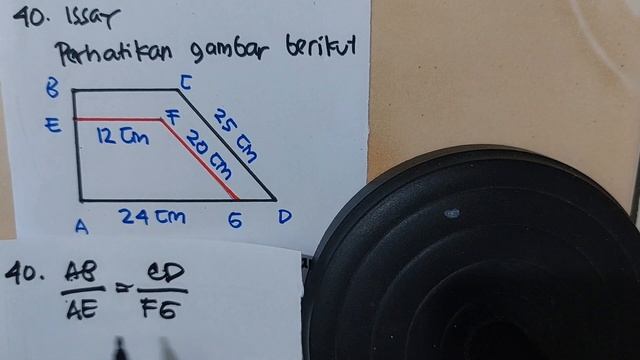 40. Issay
Perhatikan gambar berikut
B C
E F
12 Cm 20 Cm 25 Cm
A 24 Cm G D
40. AB/AE = CD/FG